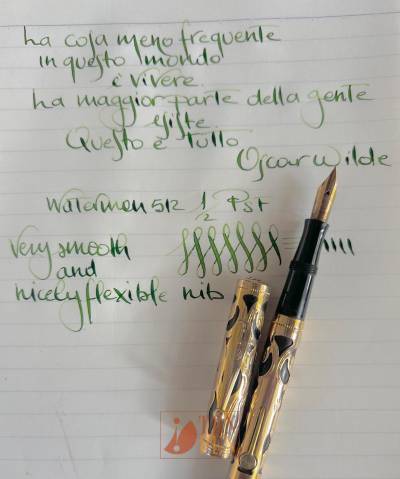 La cosa meno frequente
in questo mondo
è vivere.
La maggior parte della gente
esiste.
Questo è tutto
Oscar Wilde
Watermen 512 1/2 PSF
Very smooth
and
nicely flexible nib